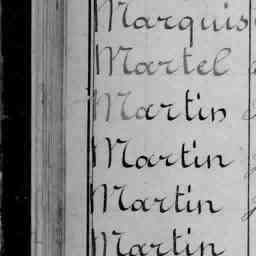 Marquis
Martel
Martin
Martin
Martin
Martin